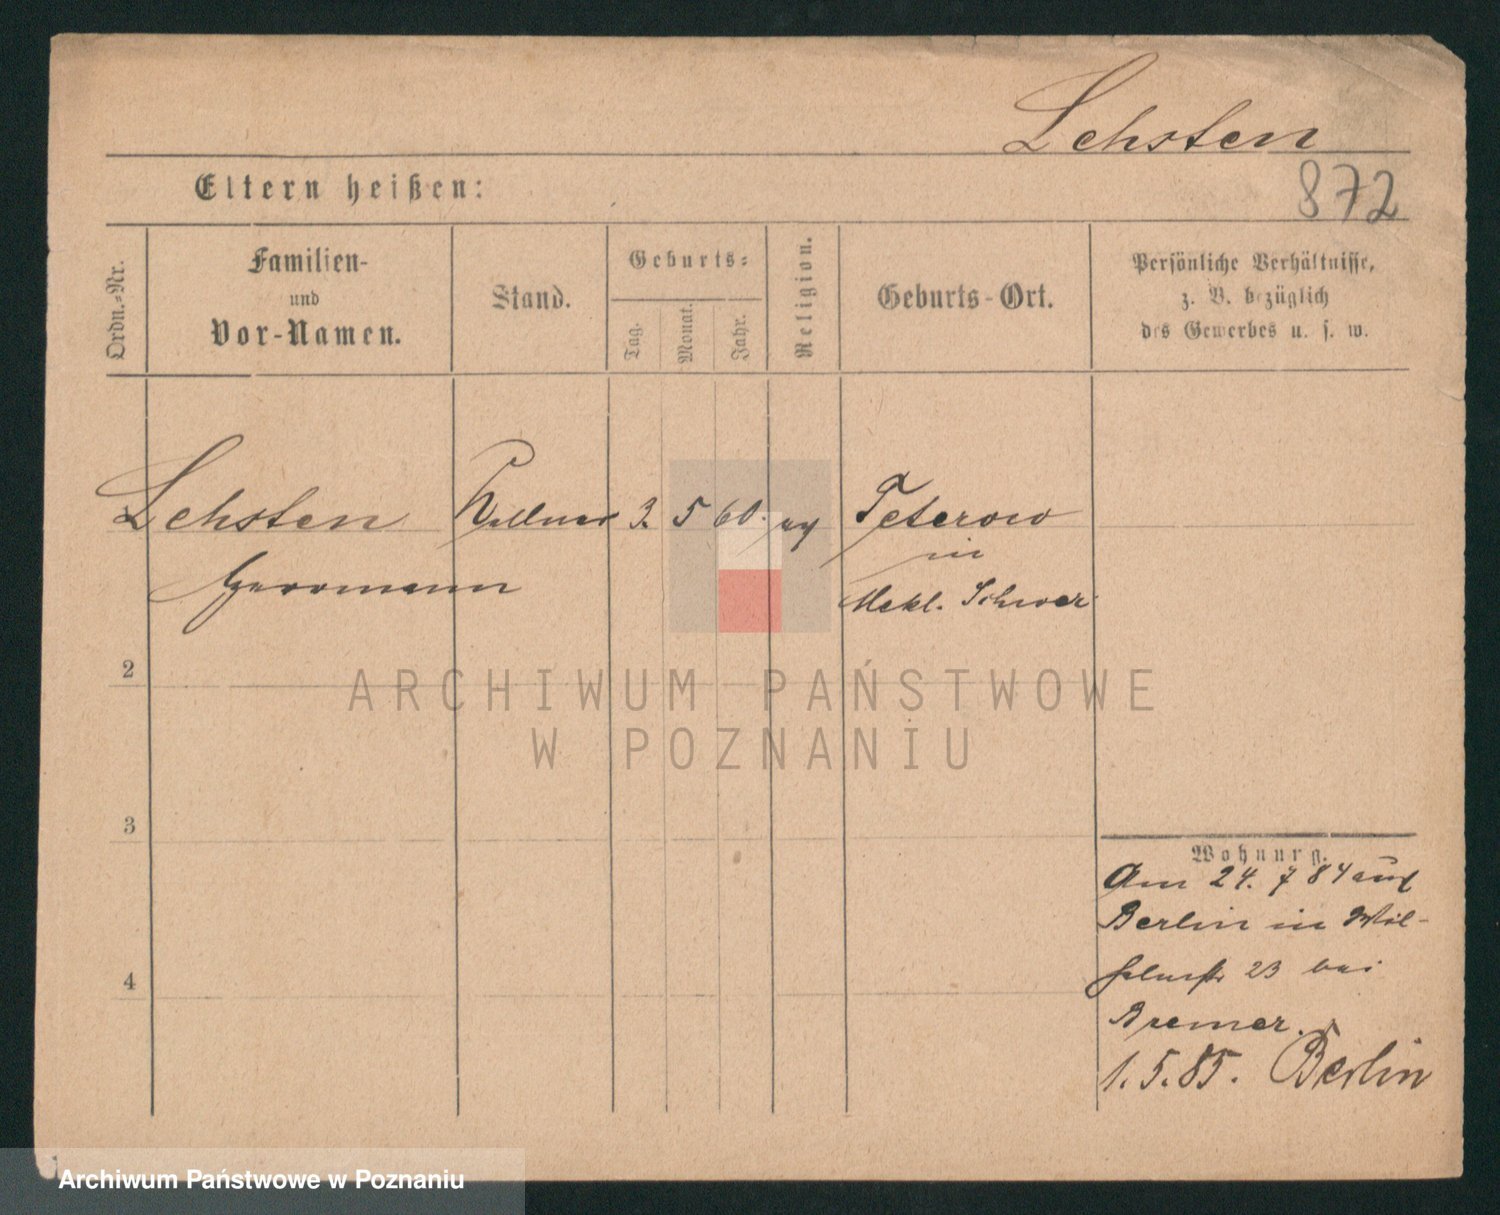 Lehsten
Eltern heißen:
872
Ordn.-Nr.
Familien-
und
Vor-Namen.
Stand.
Geburts-
Tag.
Monat.
Jahr.
Religion.
Geburts-Ort.
Persönliche Verhältnisse,
z. B. bezüglich
des Gewerbes u. s. w.
Lehsten Kellner 3. 5 60. Teterow
Herrmann in
Mekl. Schwer
2
3
4
Wohnung.
Am 24. 7 84 aus
Berlin in Wil-
helmstr 23 bei
Bremer.
1.5.85. Berlin
ARCHIWUM PAŃSTWOWE
W POZNANIU
Archiwum Państwowe w Poznaniu